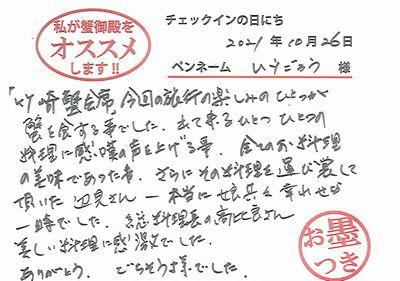 私が蟹御殿を
オススメ
します!!
チェックインの日にち
2021年10月26日
ペンネーム いけごろう 様
「竹崎蟹会席」今回の旅行の楽しみのひとつが
蟹を食する事でした。出て来るひとつひとつの
料理に感嘆の声を上げる事、全てのお料理
の美味であった事、さらにそのお料理を運び
頂いた辺見さん 本当に 幸わせな
一時でした。総料理長の高比良さん
美しい料理に感激でした。
ありがとう。ごちそう様でした。
お墨
つき